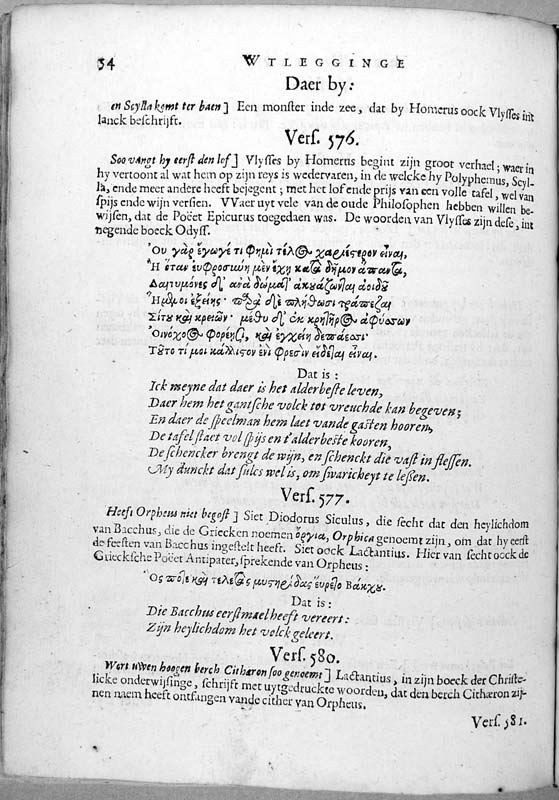 34 WTLEGGINGE
Daer by:
en Scylla komt ter baen] Een monster inde zee, dat by Homerus oock Vlysses int
lanck beschrijft.
Vers. 576.
Soo vangt hy eerst den lof] Vlysses by Homerus begint zijn groot verhael; waer in
hy vertoont al wat hem op zijn reys is wedervaren, in de welcke hy Polyphemus, Scyl-
la, ende meer andere heeft bejegent; met het lof ende prijs van een volle tafel, wel van
spijs ende wijn versien. VVaer uyt vele van de oude Philosophen hebben willen be-
wijsen, dat de Poëet Epicurus toegedaen was. De woorden van Vlysses zijn dese, int
negende boeck Odyss.
Οὐ γὰρ ἔγωγέ τι φημὶ τέλος χαριέστερον εἶναι,
Ἢ ὅταν εὐφροσύνη μὲν ἔχῃ κατὰ δῆμον ἅπαντα,
Δαιτυμόνες δ' ἀνὰ δώματ' ἀκουάζωνται ἀοιδοῦ
Ἥμενοι ἑξείης· παρὰ δὲ πλήθωσι τράπεζαι
Σίτου καὶ κρειῶν· μέθυ δ' ἐκ κρητῆρος ἀφύσσων
Οἰνόχοος φορέησι, καὶ ἐγχείῃ δεπάεσσι·
Τοῦτο τί μοι κάλλιστον ἐνὶ φρεσὶν εἴδεται εἶναι.
Dat is:
Ick meyne dat daer is het alderbeste leven,
Daer hem het gantsche volck tot vreuchde kan begeven;
En daer de speelman hem laet vande gasten hooren,
De tafel staet vol spijs en t'alderbeste kooren,
De schencker brengt de wijn, en schenckt die vast in flessen.
My dunckt dat sulcs wel is, om swaricheyt te lessen.
Vers. 577.
Heeft Orpheus niet begost] Siet Diodorus Siculus, die secht dat den heylichdom
van Bacchus, die de Griecken noemen ὄργια, Orphica genoemt zijn, om dat hy eerst
de feesten van Bacchus ingestelt heeft. Siet oock Lactantius. Hier van secht oock de
Griecksche Poëet Antipater, sprekende van Orpheus:
Ὅς ποτε καὶ τελετὰς μυστηρίδας εὕρετο Βάκχου.
Dat is:
Die Bacchus eerstmael heeft vereert:
Zijn heylichdom het volck geleert.
Vers. 580.
Wert uwen hoogen berch Cithæron soo genoemt] Lactantius, in zijn boeck der Christe-
licke onderwijsinge, schrijft met uytgedruckte woorden, dat den berch Cithæron zij-
nen naem heeft ontfangen vande cither van Orpheus.
Vers. 581.